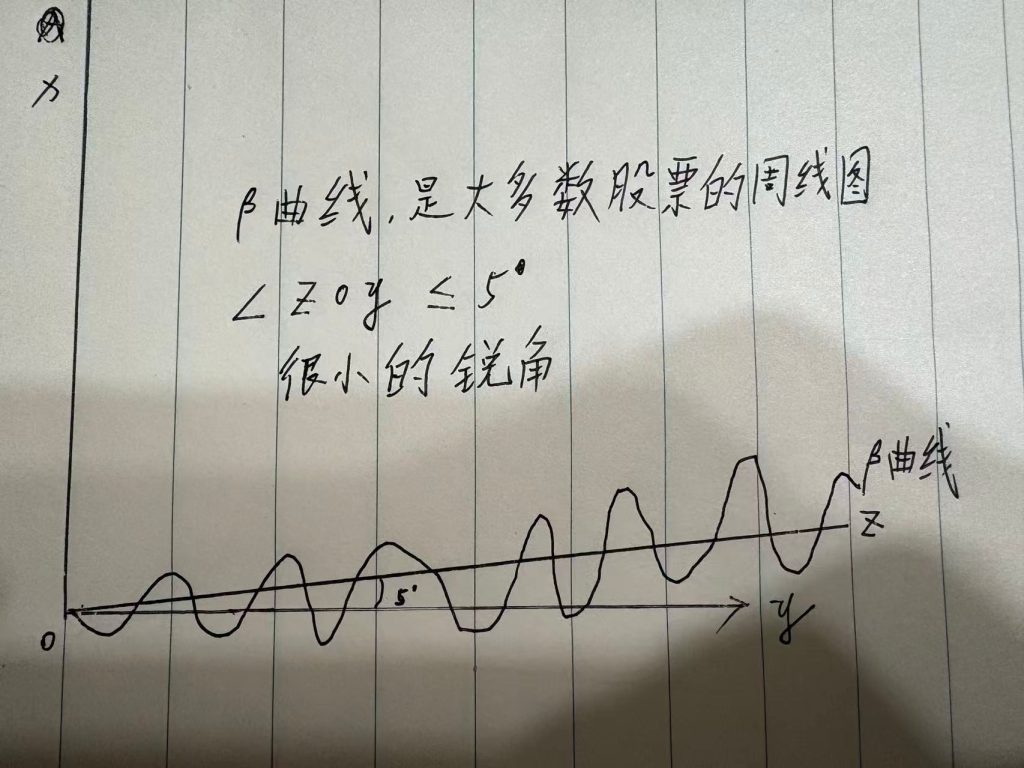 x
β曲线，是大多数股票的周线图
∠ZOy ≤ 5°
很小的锐角
β曲线
Z
5°
y
O